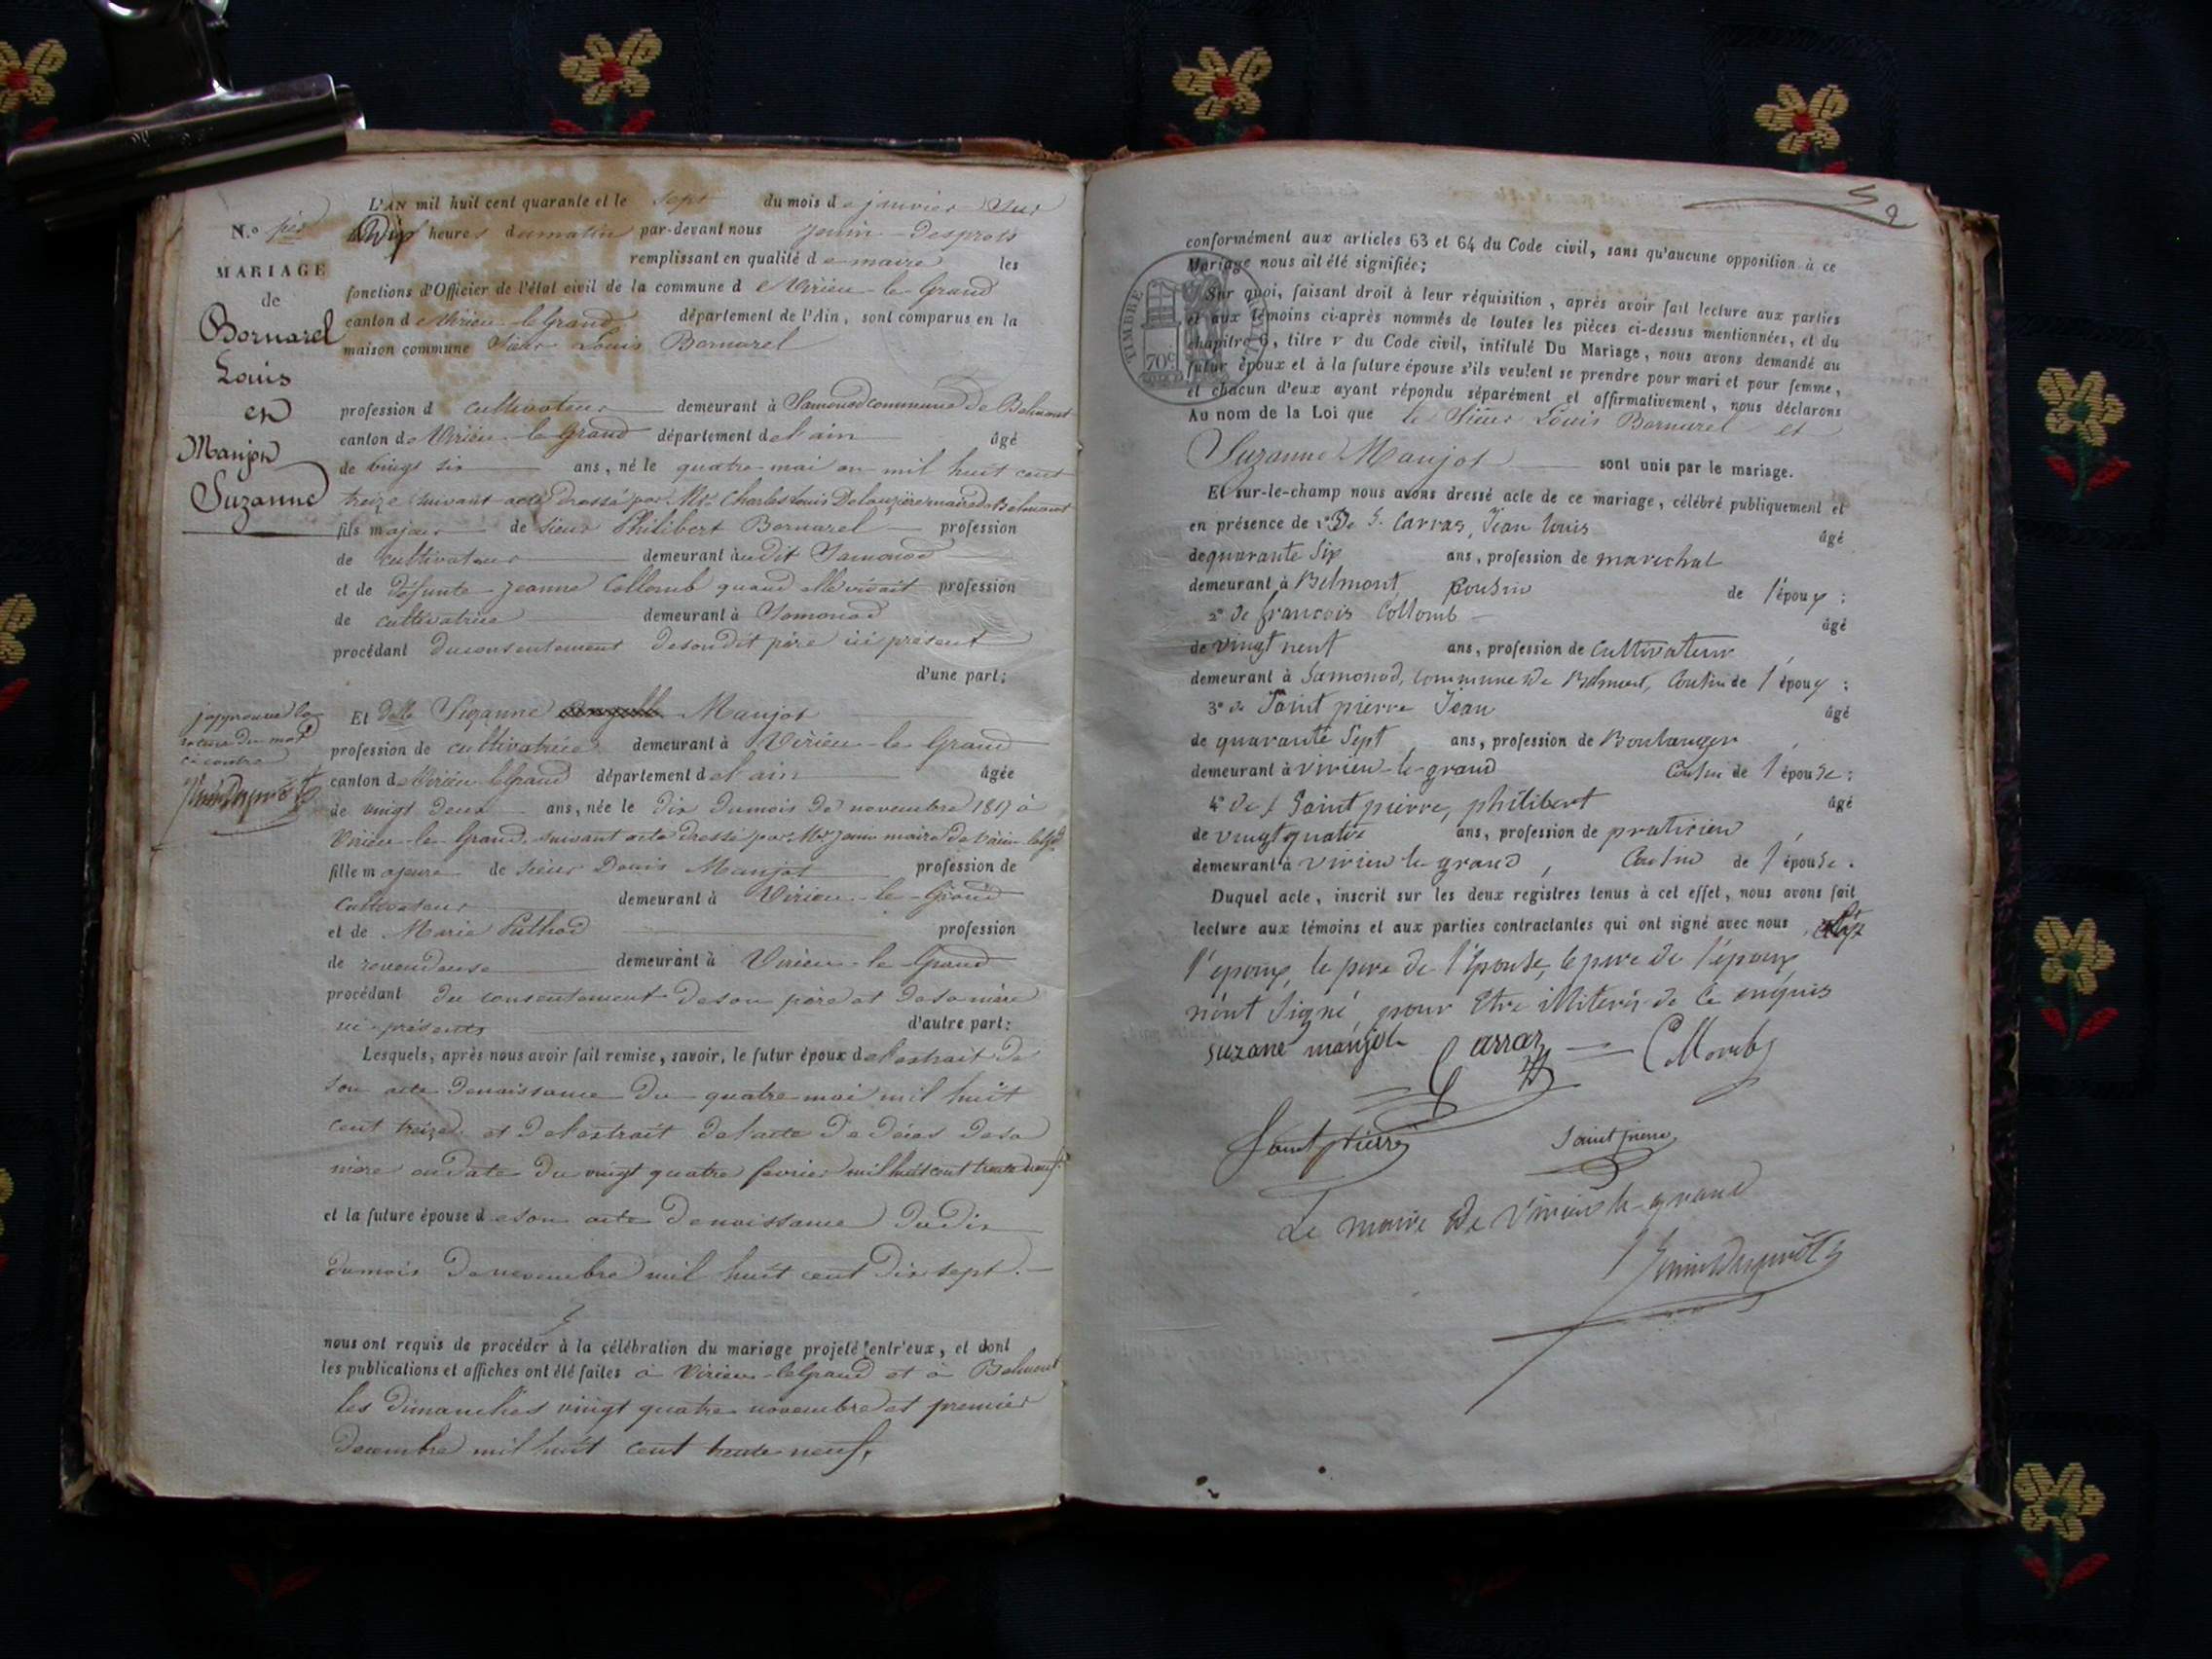 L'AN mil huit cent quarante et le sept du mois de janvier Sur
les Dix heures du matin par-devant nous Jenin Desprots
N.o
remplissant en qualité de maire les
MARIAGE
de
Bornarel
Louis
et
Manjot
Suzanne
fonctions d'Officier de l'état civil de la commune de Virieu-le-Grand
canton de Virieu-le-Grand département de l'Ain, sont comparus en la
maison commune Sieur Louis Bornarel
profession d cultivateur demeurant à Samonod commune de Belmont
canton de Virieu-le-Grand département de l'ain âgé
de vingt six ans, né le quatre mai an mil huit cent
treize suivant acte dressé par Mr Charles Louis maire de Belmont
fils majeur de sieur Philibert Bornarel profession
de cultivateur demeurant audit Samonod
et de défunte Jeanne Collomb quand elle vivait profession
de cultivatrice demeurant à Samonod
procédant du consentement de son dit père ici présent
d'une part;
j'approuve la
rature du mot
ci contre
Et delle Suzanne Manjot
profession de cultivatrice demeurant à Virieu-le-Grand
canton de Virieu-le Grand département de l'ain âgée
de vingt deux ans, née le dix du mois de novembre 1817 à
Virieu-le-Grand suivant acte dressé par Mr Jenin maire de Virieu-le-Gd
fille majeure de sieur Denis Manjot profession de
Cultivateur demeurant à Virieu-le-Grand
et de Marie profession
de revendeuse demeurant à Virieu-le-Grand
procédant du consentement de son père et de sa mère
ici présents d'autre part:
Lesquels, après nous avoir fait remise, savoir, le futur époux de l'extrait de
son acte de naissance du quatre mai mil huit
cent treize et de l'extrait de l'acte de décès de sa
mère en date du vingt quatre fevrier mil huit cent trente neuf
et la future épouse de son acte de naissance du dix
du mois de novembre mil huit cent dix sept.
nous ont requis de procéder à la célébration du mariage projeté entr'eux, et dont
les publications et affiches ont été faites à Virieu-le Grand et à Belmont
les dimanches vingt quatre novembre et premier
decembre mil huit cent trente neuf,
2
conformément aux articles 63 et 64 du Code civil, sans qu'aucune opposition à ce
Mariage nous ait été signifiée;
TIMBRE
70c
Sur quoi, faisant droit à leur réquisition, après avoir fait lecture aux parties
et aux témoins ci-après nommés de toutes les pièces ci-dessus mentionnées, et du
chapitre 6, titre v du Code civil, intitulé Du Mariage, nous avons demandé au
futur époux et à la future épouse s'ils veulent se prendre pour mari et pour femme,
et chacun d'eux ayant répondu séparément et affirmativement, nous déclarons
Au nom de la Loi que le Sieur Louis Bornarel et
Suzanne Manjot sont unis par le mariage.
Et sur-le-champ nous avons dressé acte de ce mariage, célébré publiquement et
en présence de 1° De S. Carras, Jean Louis âgé
de quarante Six ans, profession de marechal
demeurant à Belmont Cousin de l'époux;
2° de francois Collomb âgé
de vingt neuf ans, profession de Cultivateur,
demeurant à Samonod, Commune de Belmont, Cousin de l'époux;
3° de Saint pierre Jean âgé
de quarante Sept, ans, profession de Boulanger,
demeurant à virieu-le-grand Cousin de l'épouse;
4° de S Saint pierre, philibert âgé
de vingt quatre ans, profession de praticien,
demeurant à virieu le grand, Cousin de l'épouse.
Duquel acte, inscrit sur les deux registres tenus à cet effet, nous avons fait
lecture aux témoins et aux parties contractantes qui ont signé avec nous,
l'epoux, le pere de l'épouse, le pere de l'époux
n'ont Signé, pour Etre illiterés de ce enquis
suzane manjot Carraz Collomb
Saint pierre Saint pierre
Le maire de Virieu-le-grand
Jenin Desprots